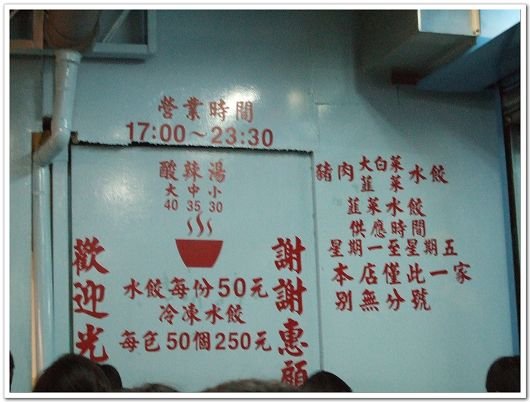 營業時間
17:00～23:30
酸辣湯
大 中 小
40 35 30
歡迎光
水餃每份50元
冷凍水餃
每包50個250元
謝謝惠顧
豬肉大白菜水餃
韮菜
韮菜水餃
供應時間
星期一至星期五
本店僅此一家
別無分號